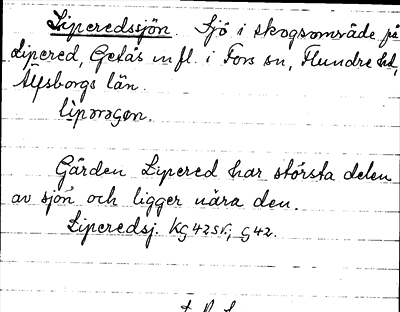 Liperedssjön. Sjö i skogsområde på
Lipered, Getås m fl. i Fors sn, Flundre hd,
Älfsborgs län.
Gården Lipered har största delen
av sjön och ligger nära den.
Liperedsj. KG42SV; G42.